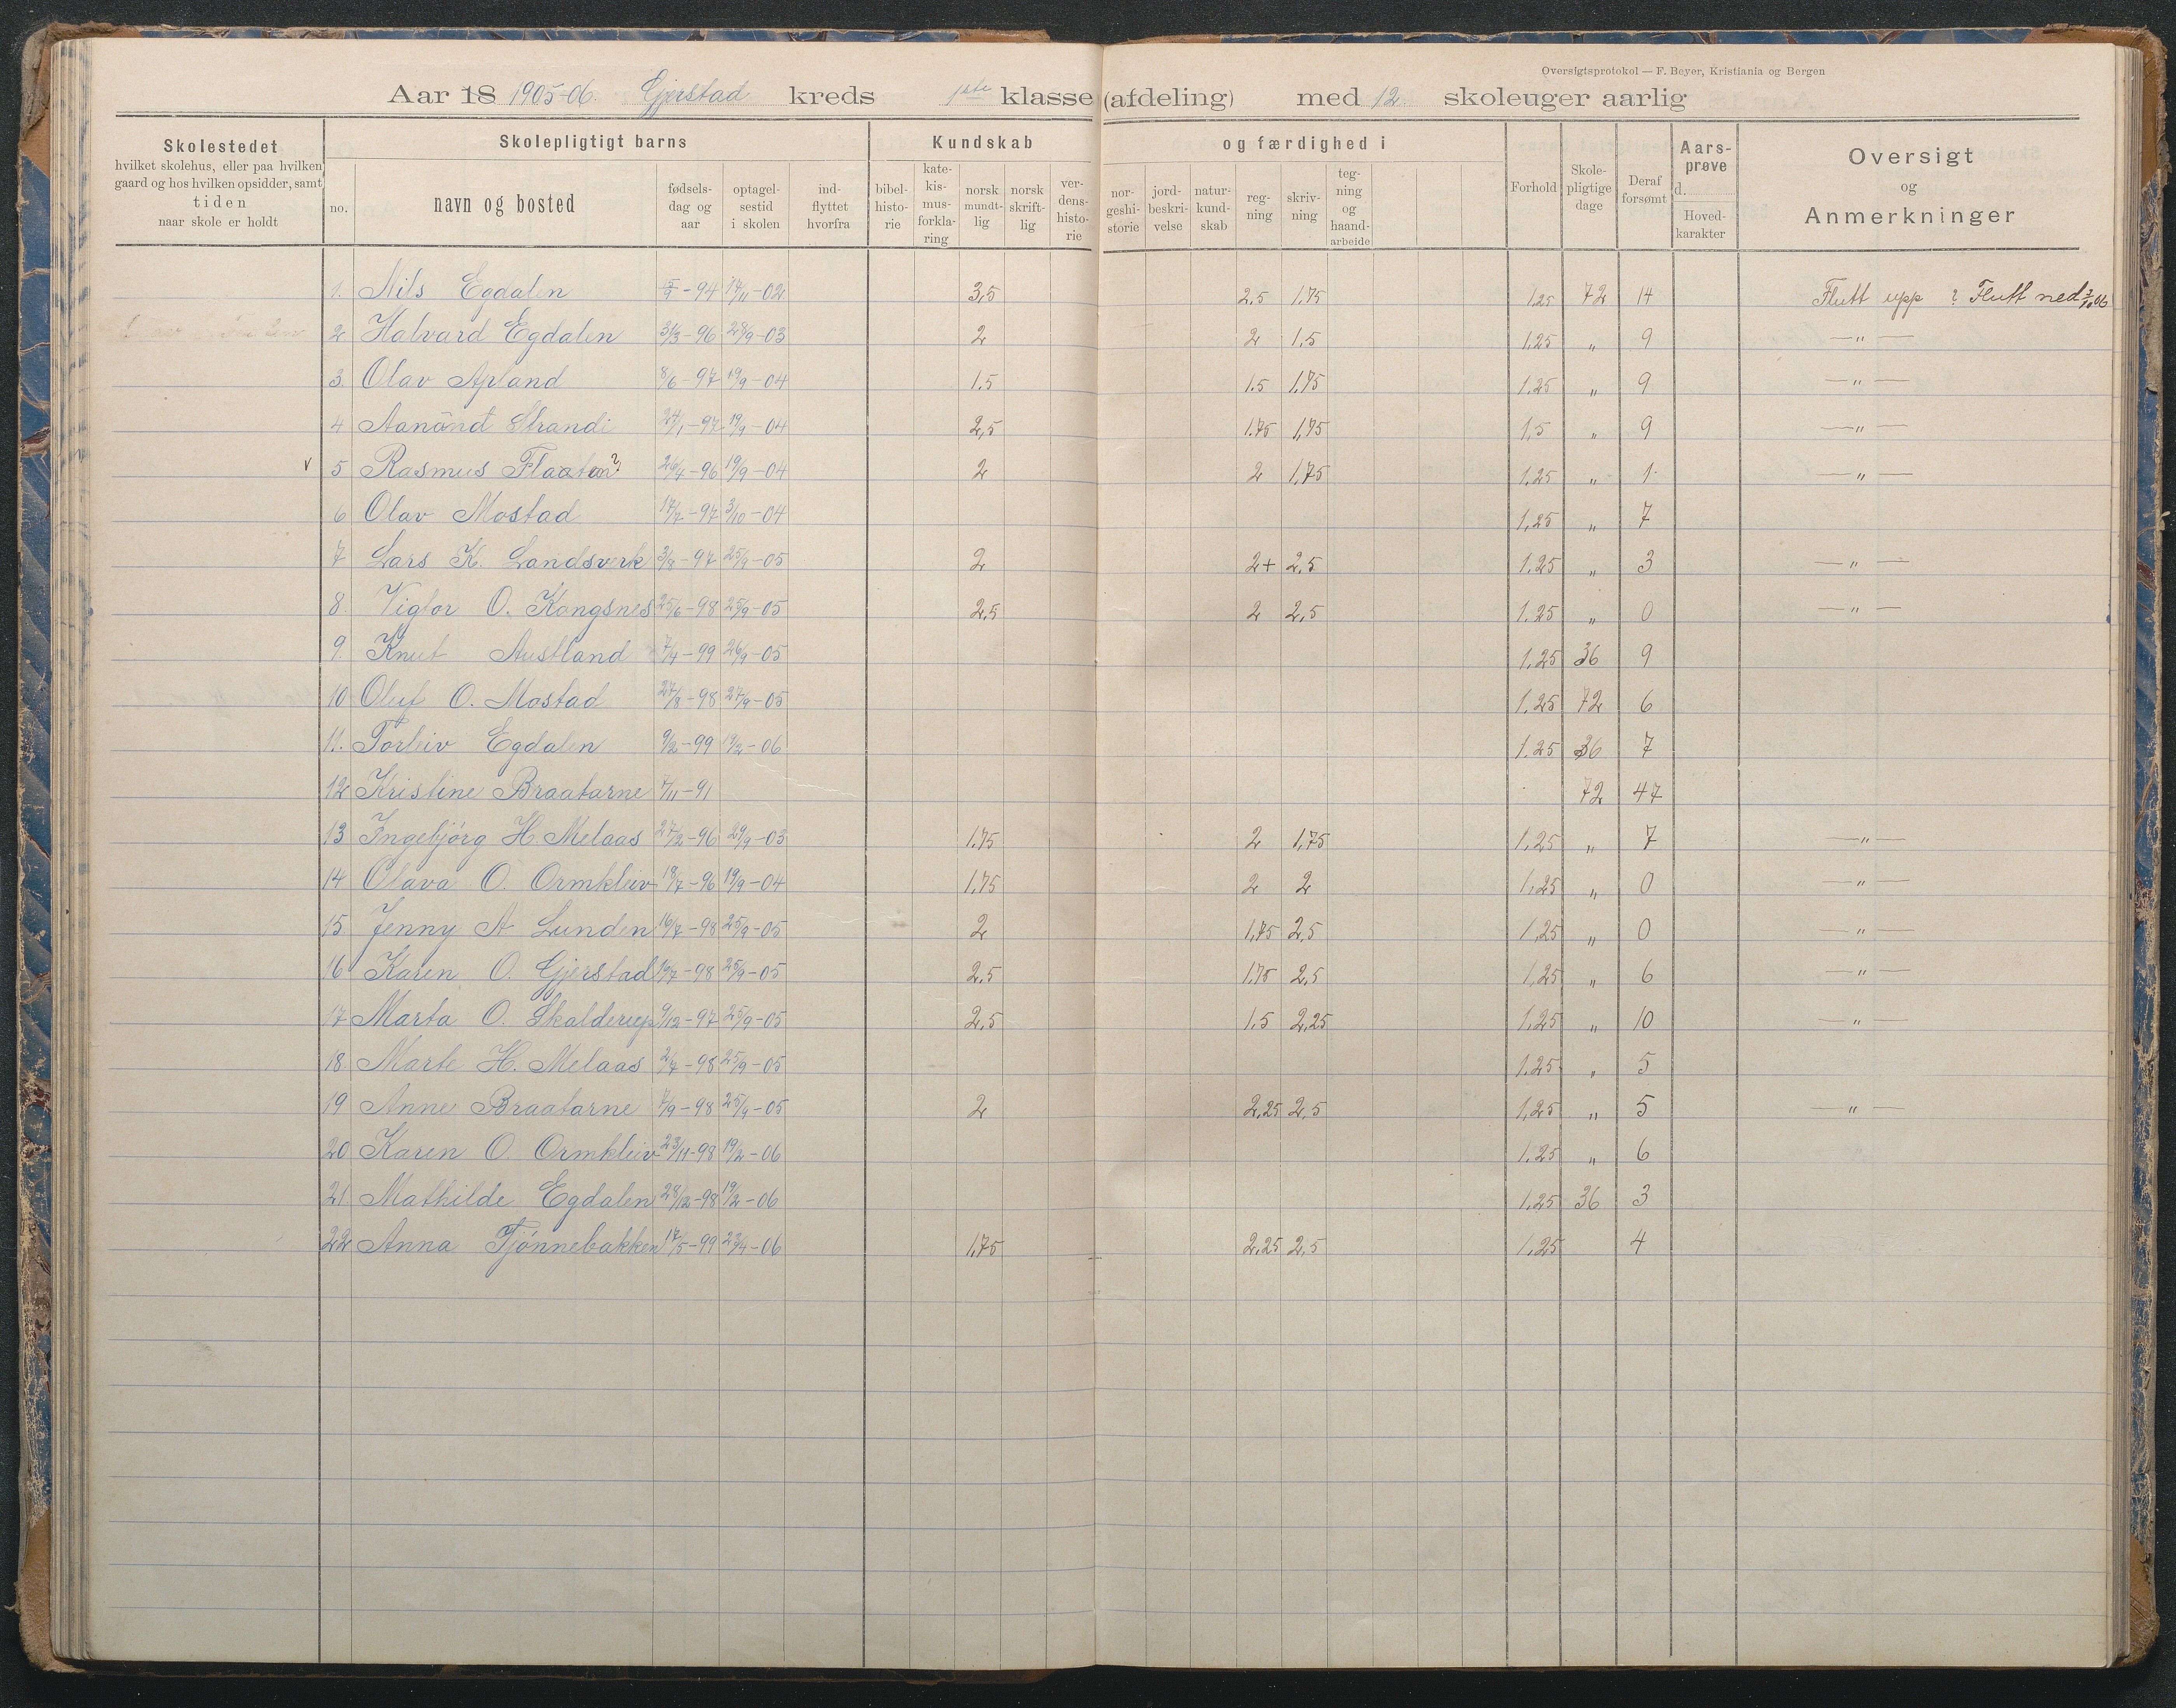 Oversigtsprotokol — F. Beyer, Kristiania og Bergen
Aar 18 1905-06. Gjerstad kreds 1ste klasse (afdeling) med 12 skoleuger aarlig
Skolestedet
hvilket skolehus, eller paa hvilken
gaard og hos hvilken opsidder, samt
tiden
naar skole er holdt
Skolepligtigt barns
no.
navn og bosted
fødsels-
dag og
aar
optagel-
sestid
i skolen
ind-
flyttet
hvorfra
Kundskab og færdighed i
bibel-
histo-
rie
kate-
kis-
mus-
forkla-
ring
norsk
mundt-
lig
norsk
skrift-
lig
ver-
dens-
histo-
rie
nor-
geshi-
storie
jord-
beskri-
velse
natur-
kund-
skab
reg-
ning
skriv-
ning
teg-
ning
og
haand-
arbeide
Forhold
Skole-
pligtige
dage
Deraf
forsømt
Aars-
prøve
d.
Hoved-
karakter
Oversigt
og
Anmerkninger
1. Nils Egdalen -94 -02 3,5 2.5 1.75 1.25 72 14 Flutt upp ? Flutt ned
2 Halvard Egdalen 31/3-96 28/9-03 2 2 1.5 1.25 " 9 —"—
3. Olav Apland 8/6-97 19/9-04 1.5 1.5 1.75 1.25 " 9 —"—
4 Aanünd Strandi 24/1-97 19/9-04 2,5 1.75 1,75 1,5 " 9 —"—
v 5 Rasmus Flaaten? 26/4-96 19/9-04 2 2 1,75 1.25 " 1 —"—
6 Olav Mostad -97 3/10-04 1,25 " 7
7 Lars K. Landsverk 3/8-97 25/9-05 2 2+ 2,5 1.25 " 3 —"—
8. Viglor O. Kongsnes 25/6-98 25/9-05 2,5 2 2,5 1.25 " 0 —"—
9. Knut Austland 7/4-99 26/9-05 1.25 36 9
10 Oluf O. Mostad 27/8-98 27/9-05 1.25 72 6
11. Torleiv Egdalen 9/2-99 19/2-06 1.25 36 7
12 Kristine Braatarne 7/11-91 72 47
13 Ingebjörg H. Melaas 27/2-96 29/9-03 1.75 2 1,75 1,25 " 7 —"—
14 Olava O. Ormkleiv 18/7-96 19/9-04 1,75 2 2 1,25 " 0 —"—
15 Jenny A Lunden 16/7-98 25/9-05 2 1,75 2,5 1,25 " 0 —"—
16 Karen O. Gjerstad -98 25/9-05 2.5 1.75 2,5 1,25 " 6 —"—
17 Marta O. Skalderup 9/12-97 25/9-05 2,5 1,5 2,25 1,25 " 10 —"—
18 Marte H. Melaas 2/4-98 25/9-05 1.25 " 5
19 Anne Braatarne 7/9-98 25/9-05 2 2,25 2,5 1,25 " 5 —"—
20 Karen O. Ormkleiv 23/11-98 19/2-06 1.25 " 6
21 Mathilde Egdalen 28/12-98 19/2-06 1,25 36 3
22 Anna Tjönnebakken 17/5-99 23/4-06 1,75 2,25 2,5 1,25 4